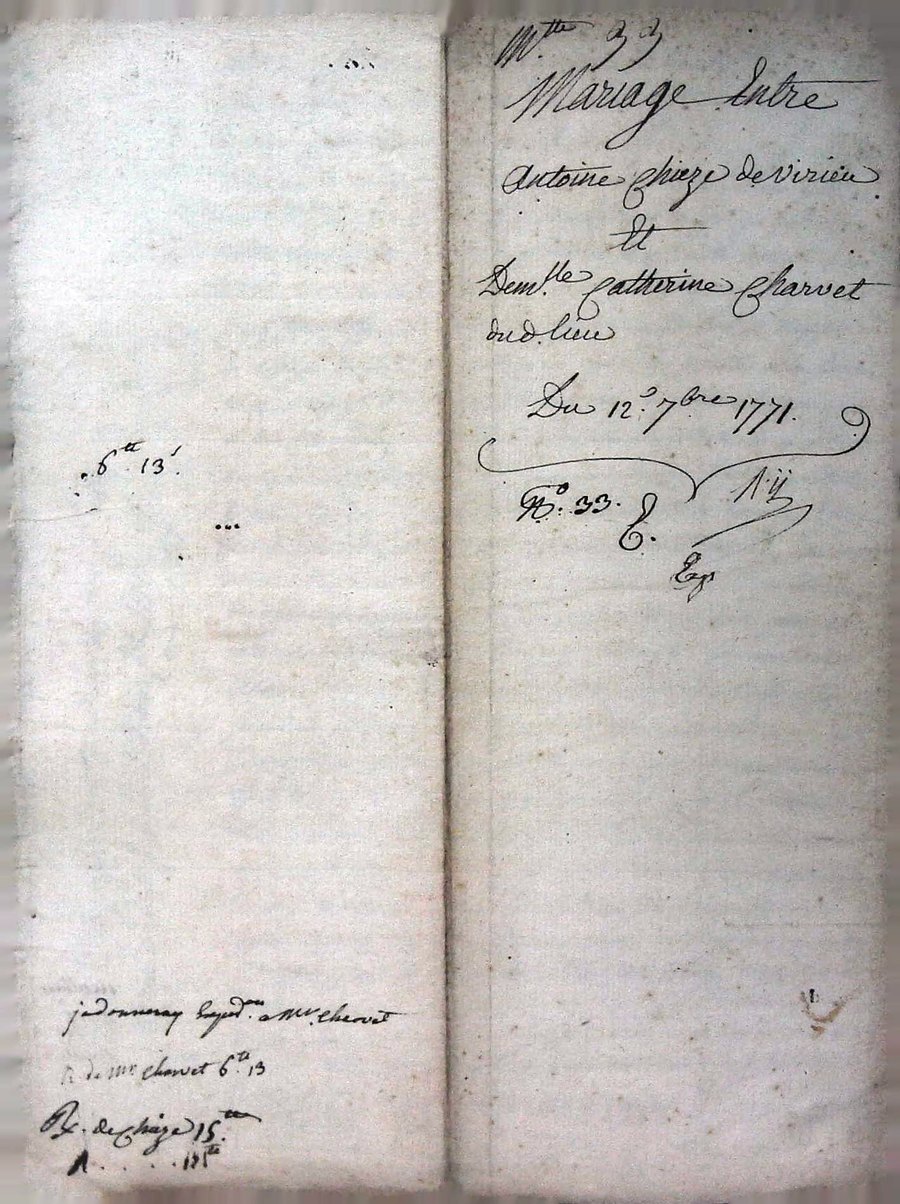 6tt 13s
jedonneray Exped.on a Mr. Charvet
R de Mr Charvet 6tt 13
Rx. de Chieze 15tt
Mtte 33
Mariage Entre
Antoine Chieze de Virieu
Et
Dem.lle Catherine Charvet
dud. lieu
Du 12e. 7bre 1771.
No. 33.
Exp